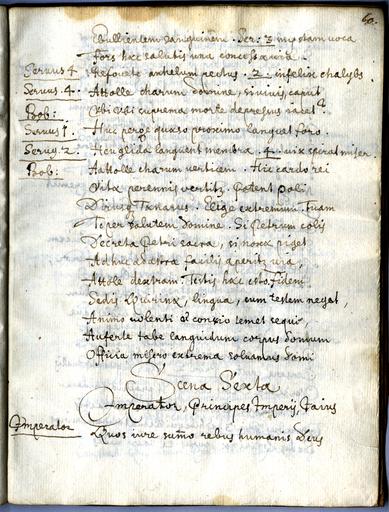 60.
Ebullientem sanguinem. Ser: 3 mystam voca
Fors hæc salutis una concessa via.
Servus 4 Refovete anhelum pectus. 2. infelix chalybs
Servus 4. Attolle charum Domine, si vivis, caput
Bob: Ubi Ubi suprema morte depressus iacet?
Servus 1. Huc perge quæso proximo languet foro.
Servus 2. Heu glida languent membra. 4. vix spirat miser.
Bob: Attolle charum verticem. Hic cardo rei
Vita perennis vertitur. Patent poli
Tænarus. Elige extremum. Tuam
Testor salutem Domine. Si Petrum colis
Decreta Petri sacra, si noxæ piget
Ad huc ad astra facilis aperitur via,
Attole dextram. Testis hæc esto fidem
Sedis Quirinæ, lingua, cum testem negat,
Animo volenti conscio temet sequi,
Auferte tabe languidum corpus domum
Officia misero extrema solvamus domi
Scena Sexta
Imperator, Principes Imperij,
Imperator Quos iure summo rebus humanis Deus